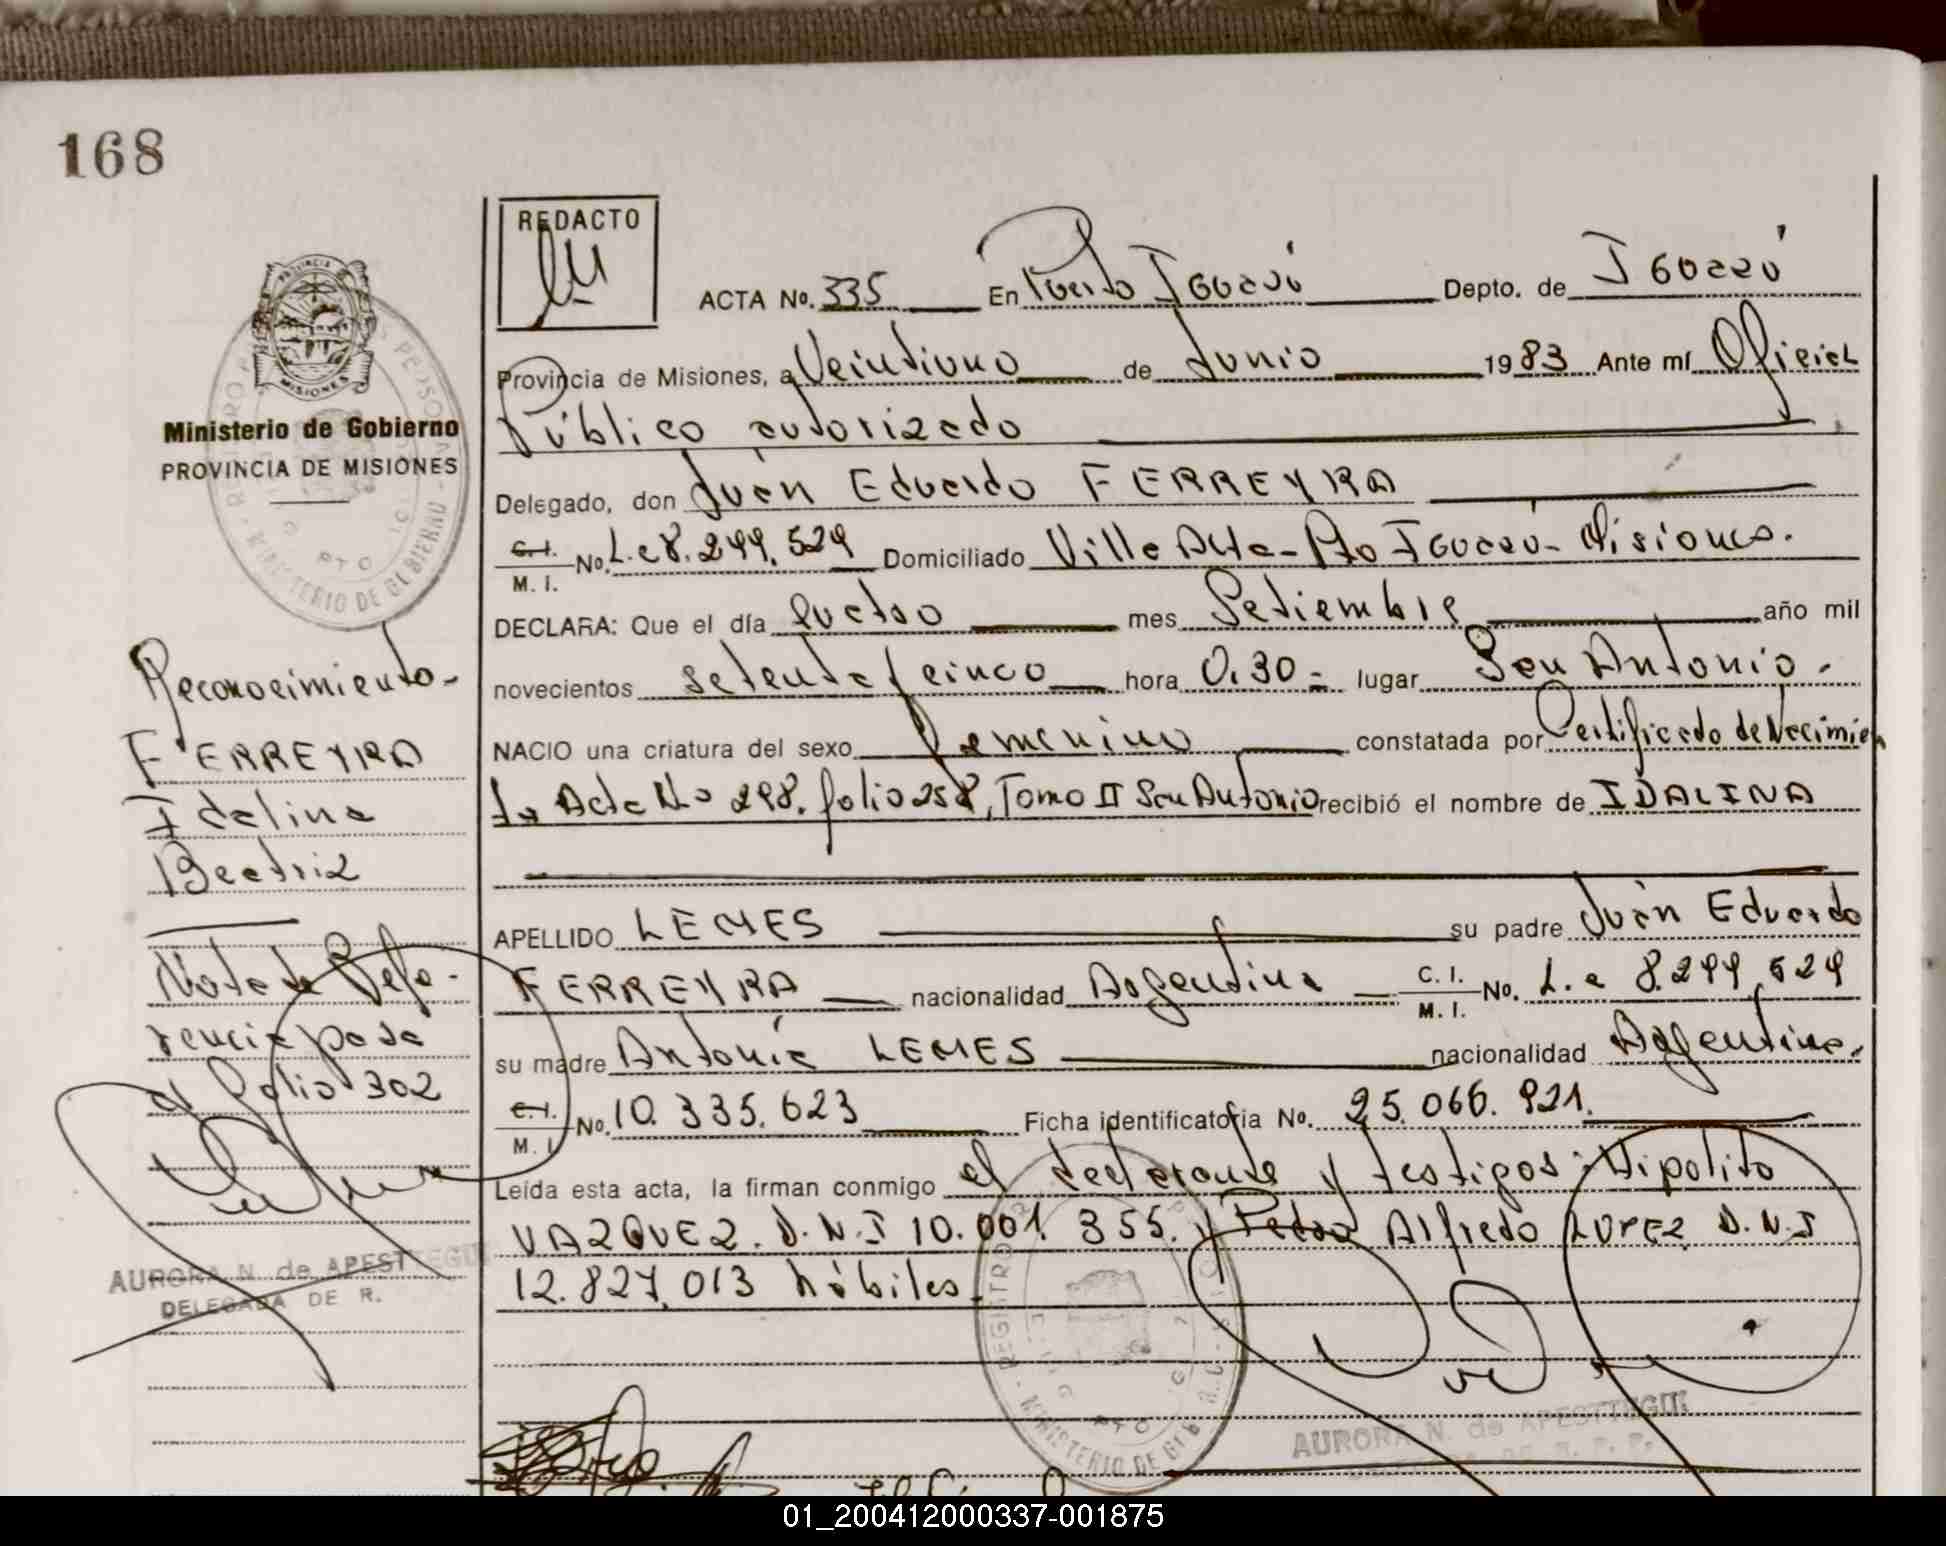 168
REDACTO
ACTA No. 335 En Puerto Iguazú Depto. de Iguazú
Provincia de Misiones, a Veintiuno de Junio 1983 Ante mí Oficial
Público autorizado
Ministerio de Gobierno
PROVINCIA DE MISIONES
Delegado, don Juan Eduardo FERREYRA
C.I. M.I. No. L.e 8.299.529 Domiciliado Villa Alta - Pto Iguazú - Misiones.
DECLARA: Que el día cuatro mes Setiembre año mil
novecientos setenta y cinco hora 0.30 - lugar San Antonio.
NACIO una criatura del sexo femenino constatada por Certificado de Nacimien
to Acta No 298. folio 258, Tomo II San Antonio recibió el nombre de IDALINA
APELLIDO LEMES su padre Juan Eduardo
FERREYRA nacionalidad Argentina C.I. M.I. No. L.e 8.299.529
su madre Antonia LEMES nacionalidad Argentina.
C.I. M.I. No. 10.335.623 Ficha identificatoria No. 25.066.921.
Leída esta acta, la firman conmigo el declarante y testigos: Hipolito
VAZQUEZ. D.N.I 10.001.355. y Pedro Alfredo LOPEZ D.N.I
12.827.013 hábiles.
Reconocimiento-
FERREYRA
Idalina
Beatriz
Nota de Refe-
rencia pasa
al folio 302
AURORA N. de APESTTEGUI
DELEGADA DE R.
AURORA N. de APESTTEGUI
MISIONES
MINISTERIO DE GOBIERNO
PTO
REGISTRO
MINISTERIO DE
PTO
01_200412000337-001875